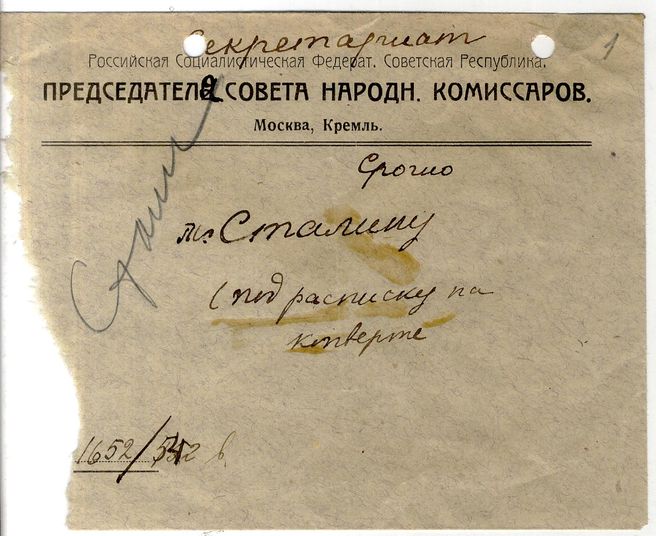 Секретариат
1
Российская Социалистическая Федерат. Советская Республика.
ПРЕДСЕДАТЕЛя СОВЕТА НАРОДН. КОМИССАРОВ.
Москва, Кремль.
Срочно
т. Сталину
(под расписку на
конверте
1652/